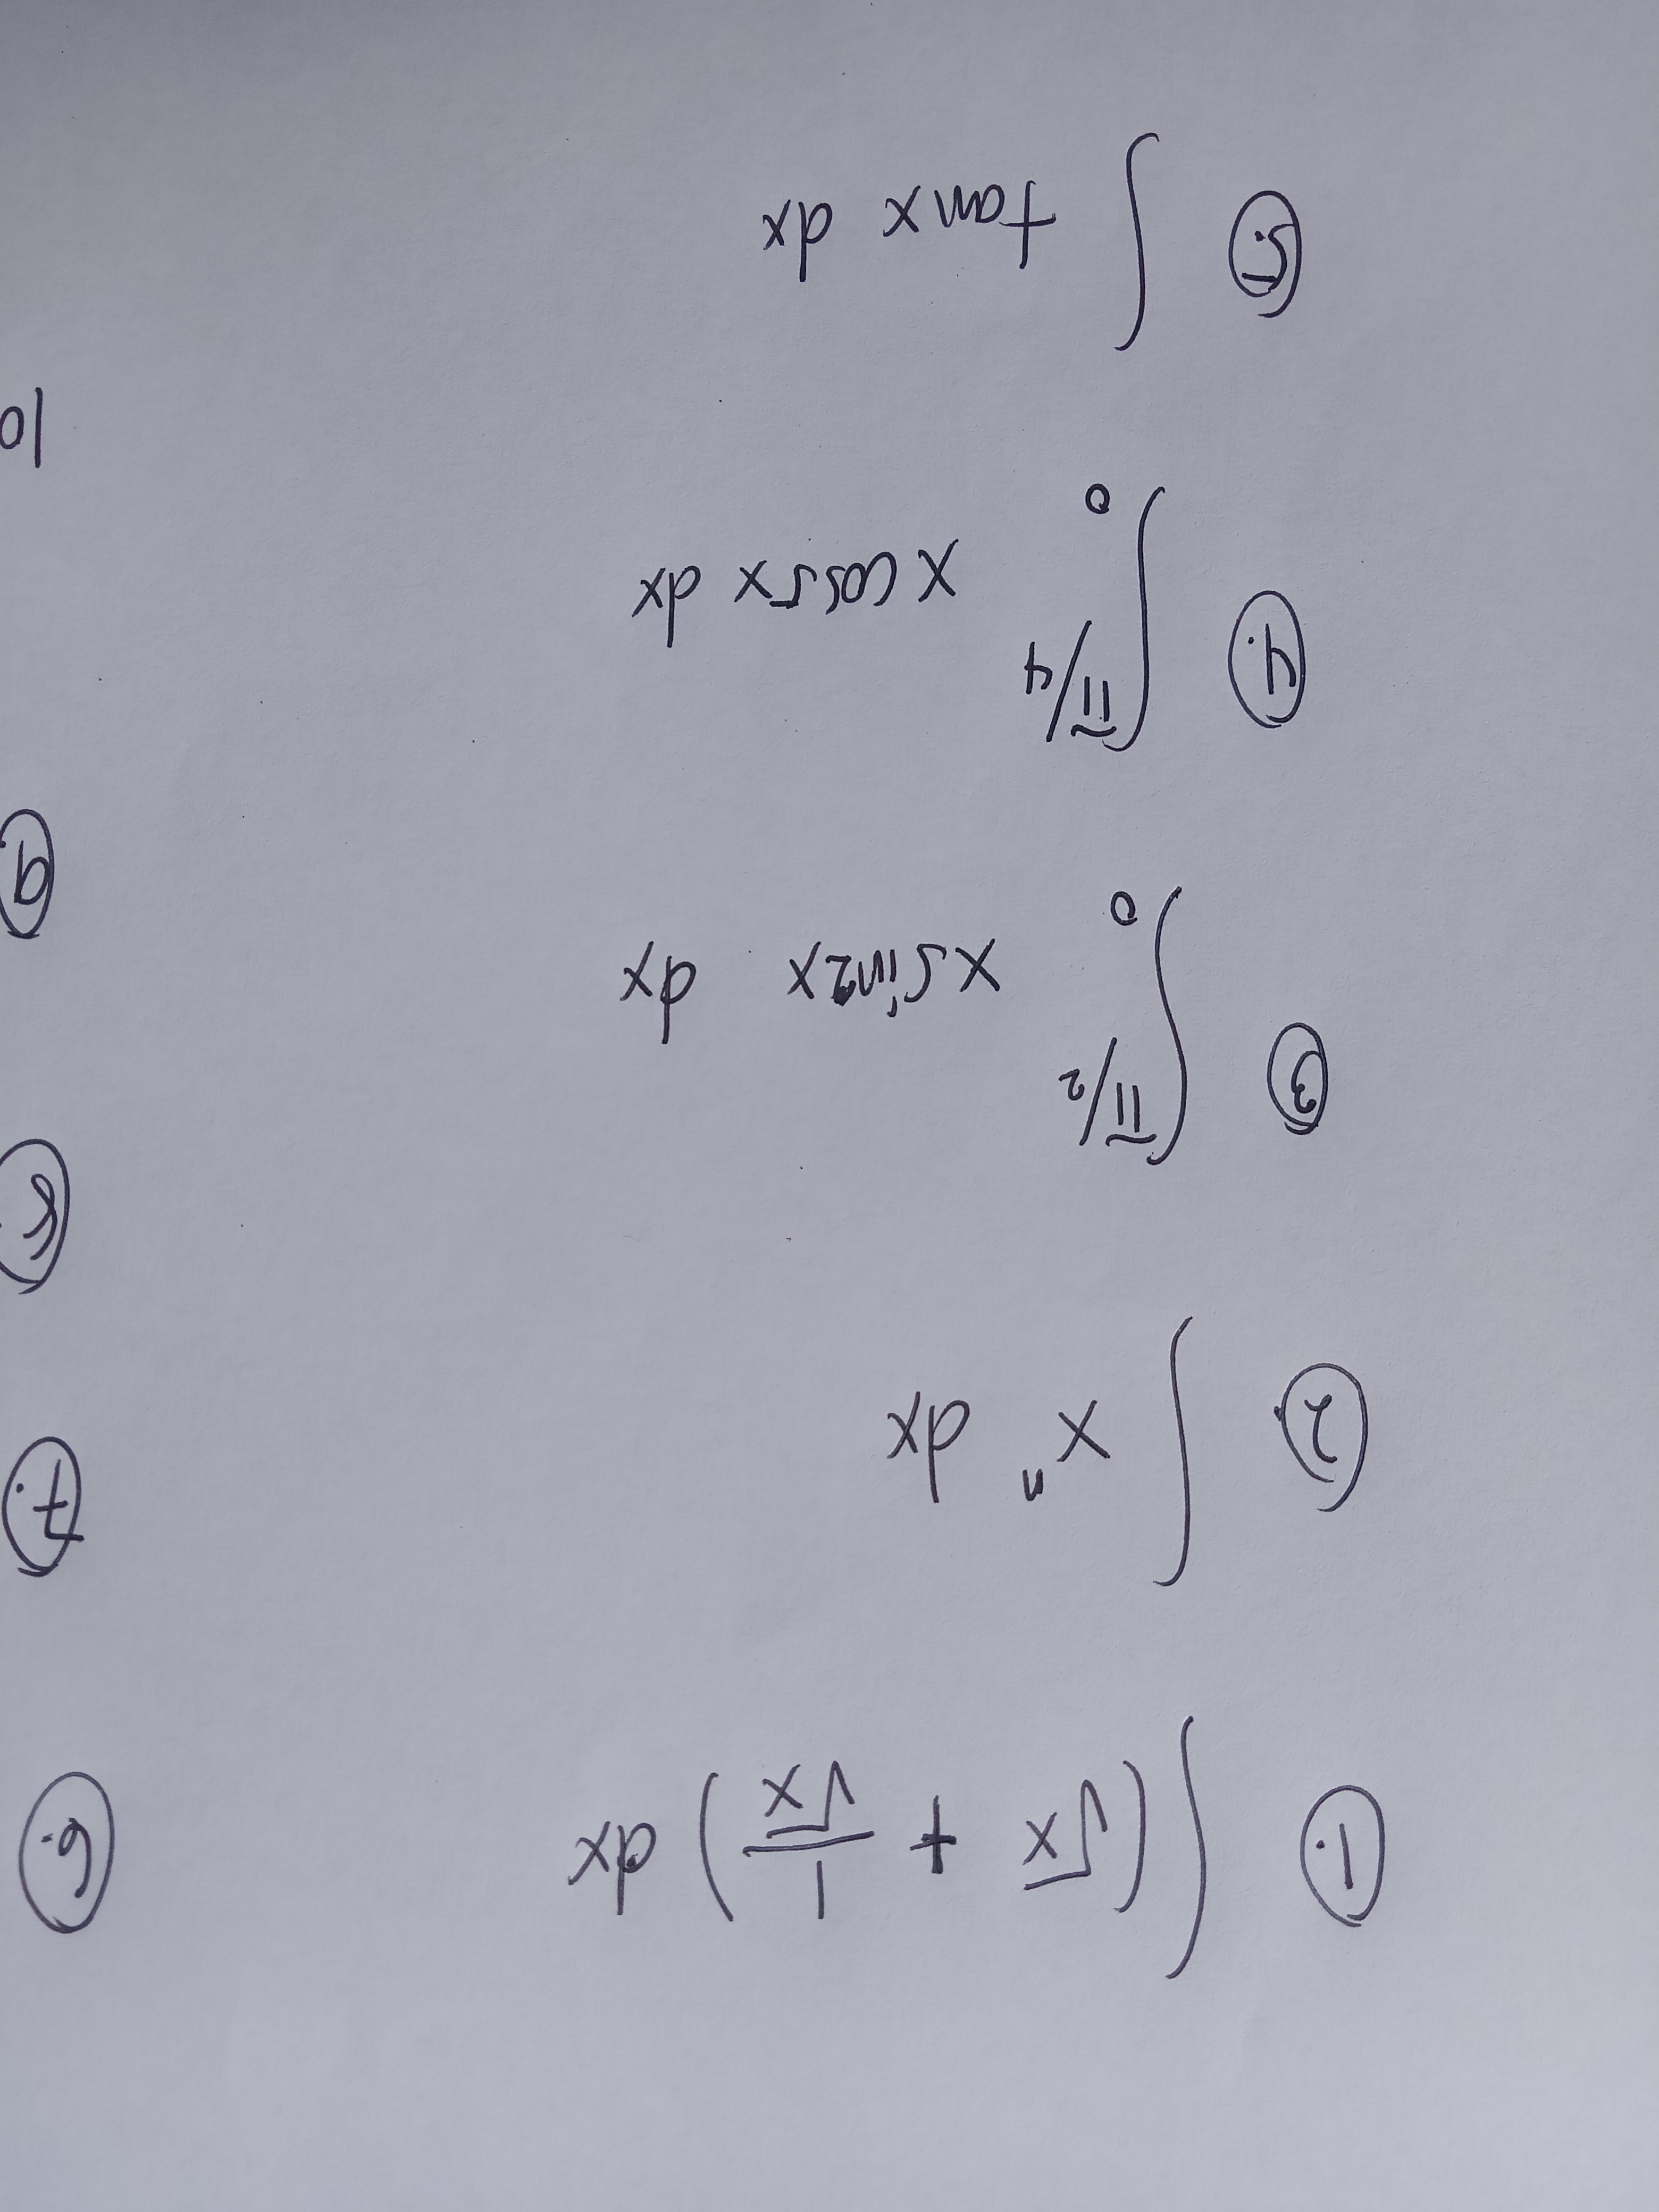 1. ∫ (√x + 1/√x) dx
2. ∫ xⁿ dx
3 ∫₀^π/2 x sin2x dx
4. ∫₀^π/4 x cos5x dx
5. ∫ tanx dx
6.
7.
8
9
10